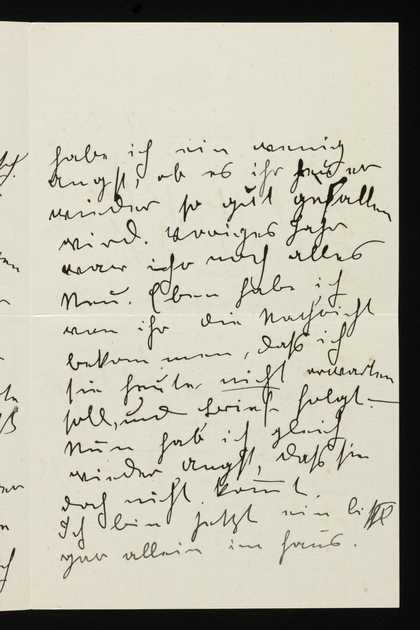 habe ich ein wenig
Angst, ob es ihr heuer
wieder so gut gefallen
wird. Voriges Jahr
war ihr noch alles
Neu. Eben habe ich
von ihr die Nachricht
bekommen, daß ich
sie heute nicht erwarten
soll, und Brief folgt.—
Nun hab ich gleich
wieder Angst, daß sie
doch nicht kommt.
Ich bin jetzt ein
gar allein im Haus.